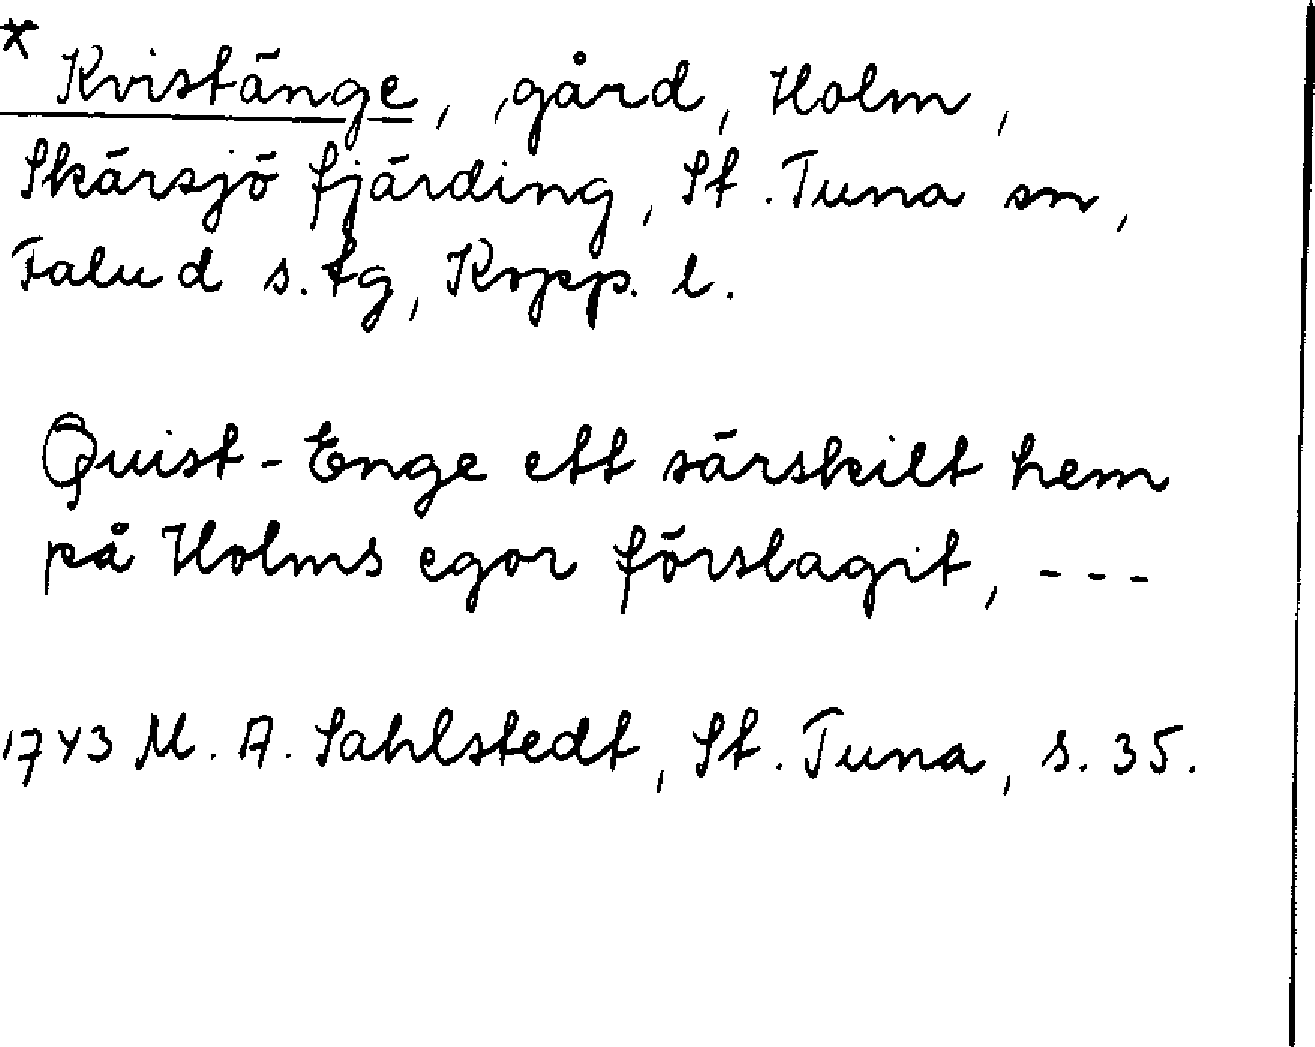 * Kvistänge, gård, Holm,
Skärsjö fjärding, St. Tuna sn,
Falu d s. tg, Kopp. l.
Quist-Enge ett särskilt hem
på Holms egor förslagit, ---
1743 M. A. Sahlstedt, St. Tuna, s. 35.